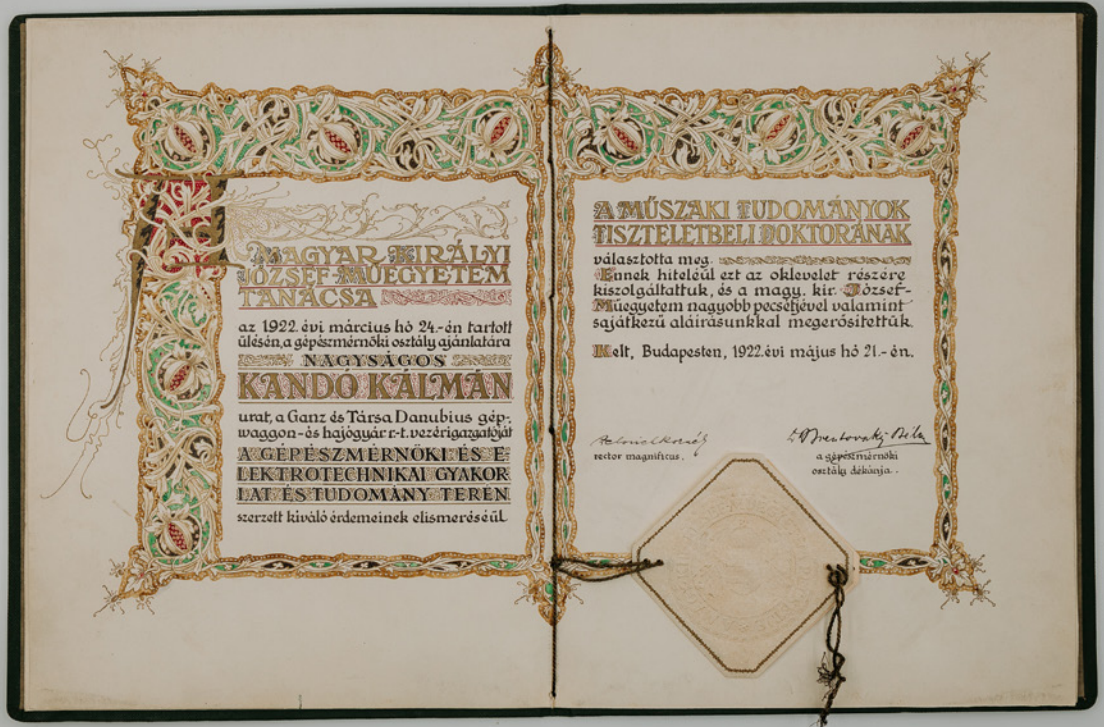 A MAGYAR KIRÁLYI
JÓZSEF-MŰEGYETEM
TANÁCSA
az 1922. évi március hó 24.-én tartott
ülésén, a gépészmérnöki osztály ajánlatára
NAGYSÁGOS
KANDÓ KÁLMÁN
urat, a Ganz és Társa Danubius gép-,
waggon- és hajógyár r.-t. vezérigazgatóját
A GÉPÉSZMÉRNÖKI ÉS E-
LEKTROTECHNIKAI GYAKOR-
LAT ÉS TUDOMÁNY TERÉN
szerzett kiváló érdemeinek elismeréséül
A MŰSZAKI TUDOMÁNYOK
TISZTELETBELI DOKTORÁNAK
választotta meg.
Ennek hiteléül ezt az oklevelet részére
kiszolgáltattuk, és a magy. kir. József-
Műegyetem nagyobb pecsétjével valamint
sajátkezű aláirásunkkal megerősitettük.
Kelt, Budapesten, 1922. évi május hó 21.-én.
rector magnificus.
a gépészmérnöki
osztály dékánja.